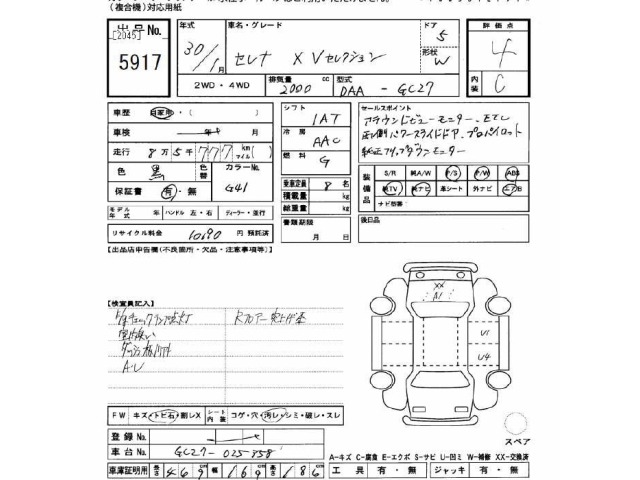 (複合機)対応用紙
出品No.
[2045]
5917
年式
30/1月
車名・グレード
セレナ X Vセレクション
ドア
5
形状
W
2WD・4WD
排気量 2000 cc
型式 DAA - GC27
評価点
4
内装
C
車歴 自家用・(
車検 年 月
走行 8万5千777 km マイル(
色 黒
色替
カラーNo. G41
保証書 有・無
モデル年式 年 ハンドル 左・右 ディーラー・並行
リサイクル料金 10190 円 預託済
シフト 1AT
冷房 AAC
燃料 G
乗車定員 8 名
積載量 kg
総重量 kg
書類期限
月 日
セールスポイント
アラウンドビューモニター、ETC
両側パワースライドドア、プロパイロット
純正フリップダウンモニター
装備品
S/R 純A/W P/S P/W ABS
純TV 純ナビ 革シート 外ナビ エアB
ナビ型番
後日品
【出品店申告欄(不良箇所・欠品・注意事項等)】
【検査員記入】
XX
A1
U1
U4
A・U
FW キズ・トビ石・割レX
シート内装 コゲ・穴・汚レ・シミ・破レ・スレ
登録No.
車台No. GC27-025858
車庫証明用 長さ 469 幅 169 高さ 186
スペア
A-キズ C-腐食 E-エクボ S-サビ U-凹ミ W-補修 XX-交換済
工具 有・無 ジャッキ 有・無